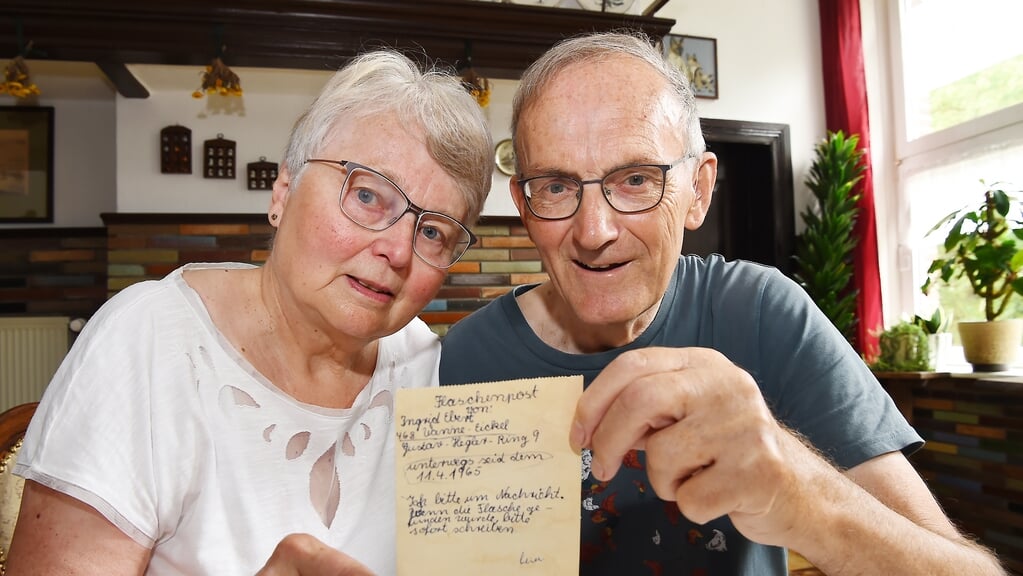 Flaschenpost
von:
Ingrid Ebert
468 Wanne-Eickel
Gustav-Hegar-Ring 9
unterwegs seid dem
11.4.1965
Ich bitte um Nachricht.
Wenn die Flasche ge-
funden wurde, bitte
sofort schreiben